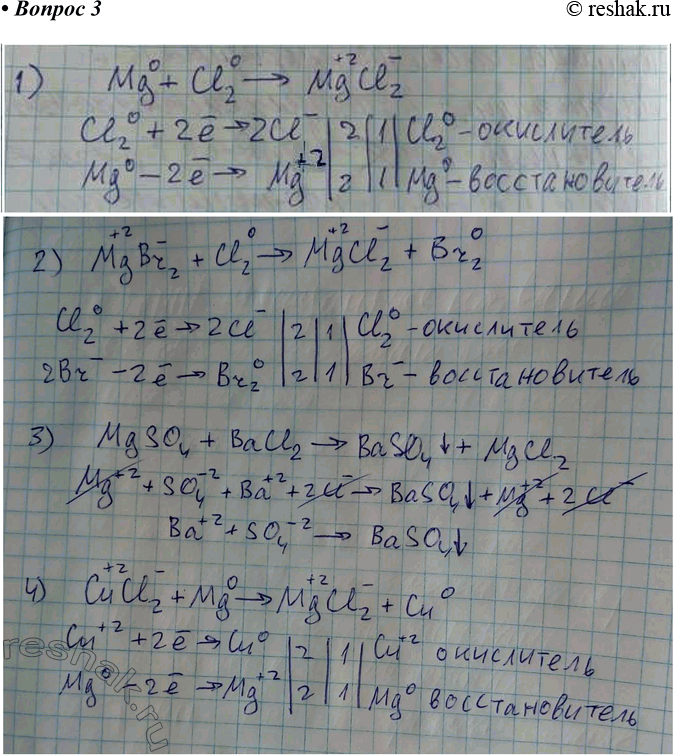 • Вопрос 3
© reshak.ru
1) Mg⁰ + Cl₂⁰ → Mg⁺²Cl₂⁻
Cl₂⁰ + 2ē → 2Cl⁻ | 2 | 1 | Cl₂⁰ - окислитель
Mg⁰ - 2ē → Mg⁺² | 2 | 1 | Mg⁰ - восстановитель
2) Mg⁺²Br₂⁻ + Cl₂⁰ → Mg⁺²Cl₂⁻ + Br₂⁰
Cl₂⁰ + 2ē → 2Cl⁻ | 2 | 1 | Cl₂⁰ - окислитель
2Br⁻ - 2ē → Br₂⁰ | 2 | 1 | Br⁻ - восстановитель
3) MgSO₄ + BaCl₂ → BaSO₄↓ + MgCl₂
Mg⁺² + SO₄⁻² + Ba⁺² + 2Cl⁻ → BaSO₄↓ + Mg⁺² + 2Cl⁻
Ba⁺² + SO₄⁻² → BaSO₄↓
4) Cu⁺²Cl₂⁻ + Mg⁰ → Mg⁺²Cl₂⁻ + Cu⁰
Cu⁺² + 2ē → Cu⁰ | 2 | 1 | Cu⁺² окислитель
Mg⁰ - 2ē → Mg⁺² | 2 | 1 | Mg⁰ восстановитель
reshak.ru